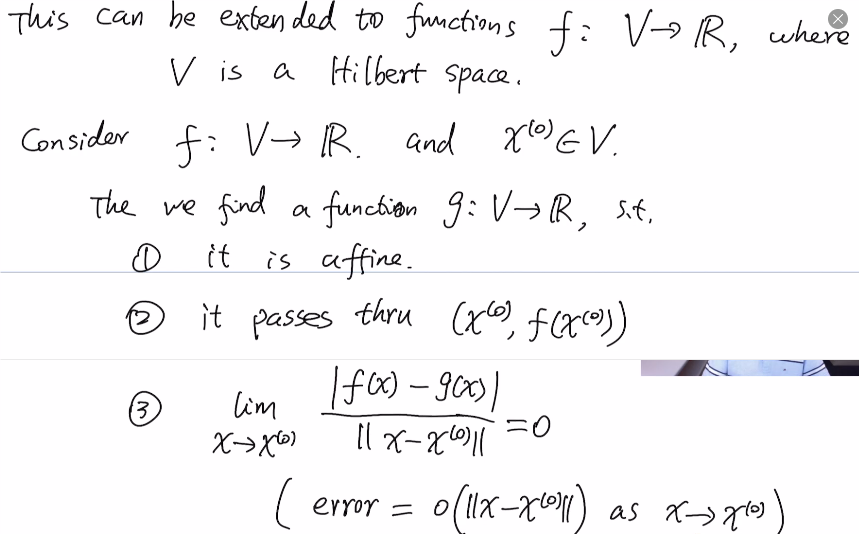 This can be extended to functions f: V→ℝ, where
V is a Hilbert space.
Consider f: V→ℝ. and x⁽⁰⁾∈V.
The we find a function g: V→ℝ, s.t.
① it is affine.
② it passes thru (x⁽⁰⁾, f(x⁽⁰⁾))
③ lim x→x⁽⁰⁾ |f(x) − g(x)| / ‖x−x⁽⁰⁾‖ = 0
( error = o(‖x−x⁽⁰⁾‖) as x→x⁽⁰⁾ )